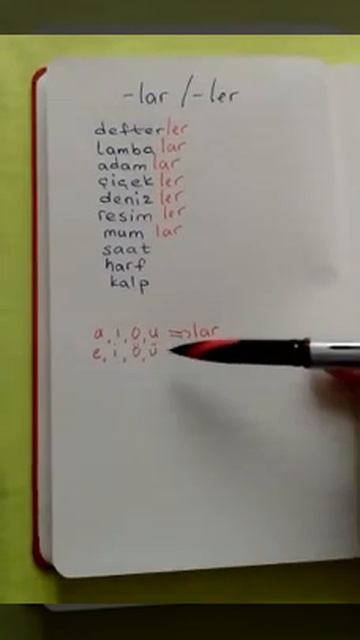 -lar / -ler
defterler
lambalar
adamlar
çiçekler
denizler
resimler
mumlar
saat
harf
kalp
a, ı, o, u => lar
e, i, ö, ü